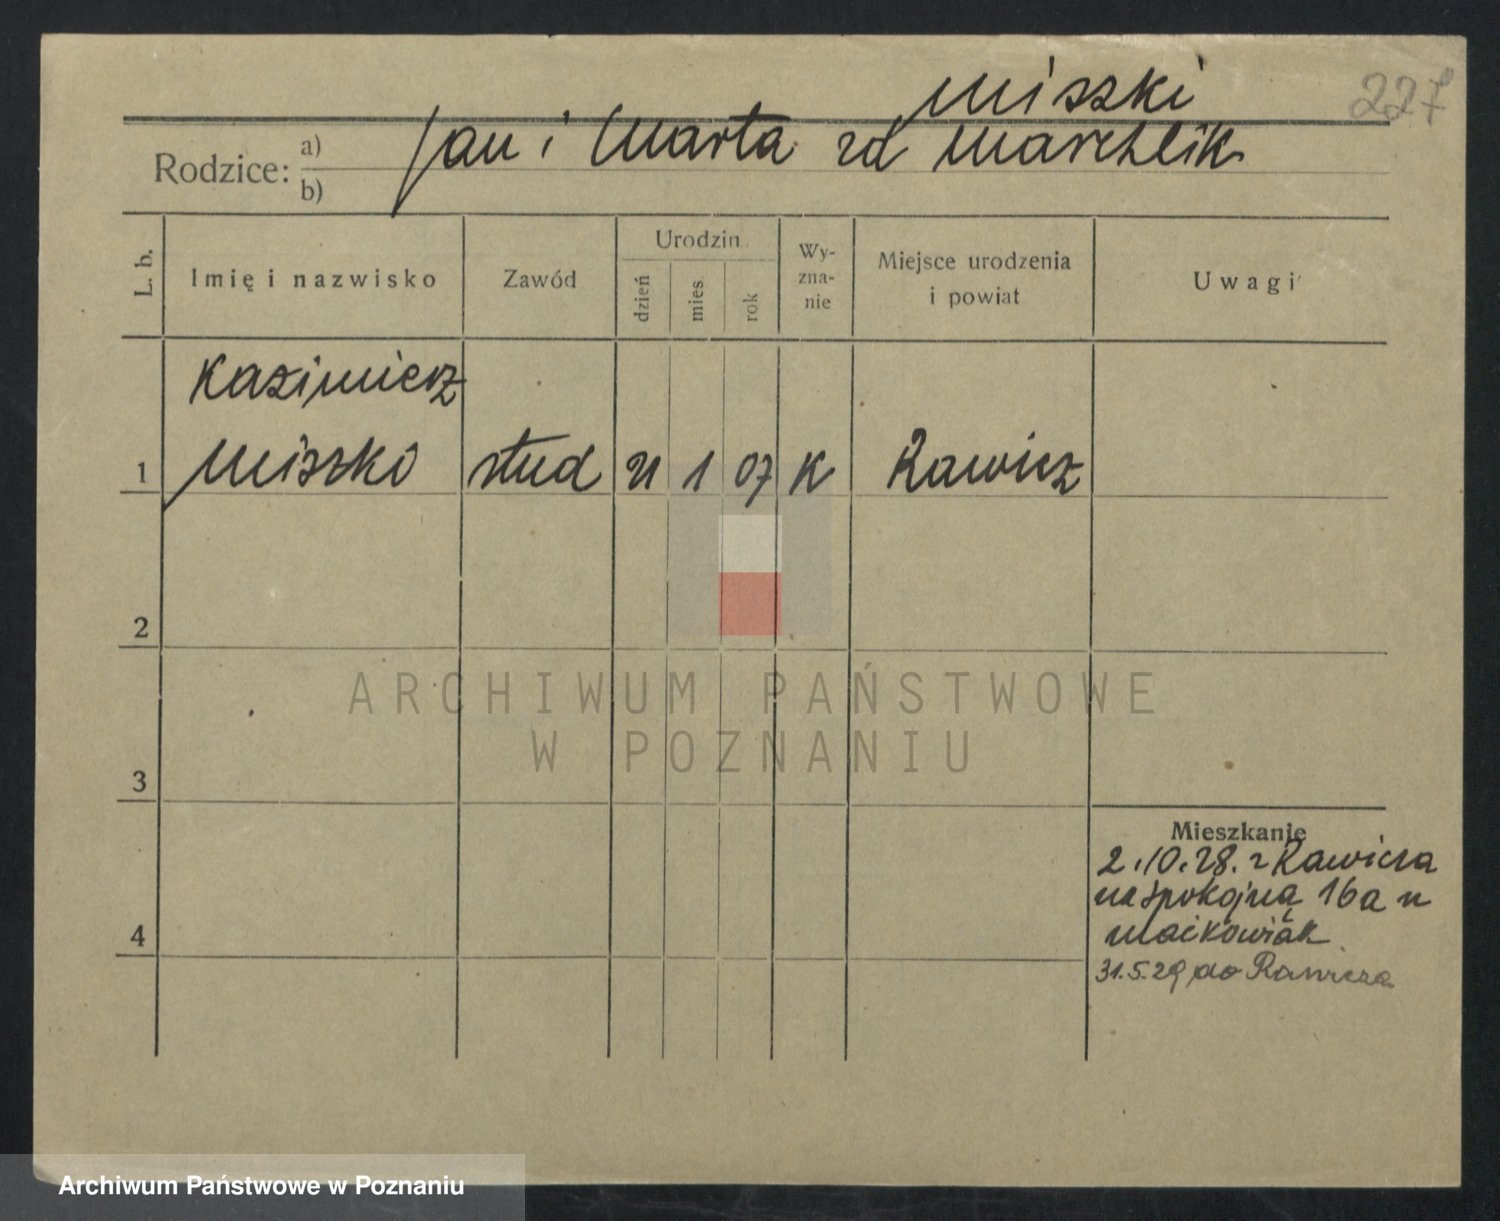 Miszki
227
Jan i Marta zd Marchlik
Rodzice: a)
b)
L. b.
Imię i nazwisko
Zawód
Urodzin
dzień
mies.
rok
Wy-
zna-
nie
Miejsce urodzenia
i powiat
Uwagi
Kazimierz
1 Miszko stud 21 1 07 K Rawicz
2
3
4
Mieszkanie
2.10.28. z Rawicza
na Spokojną 16a u
Maćkowiak
31.5.29 do Rawicza
ARCHIWUM PAŃSTWOWE
W POZNANIU
Archiwum Państwowe w Poznaniu